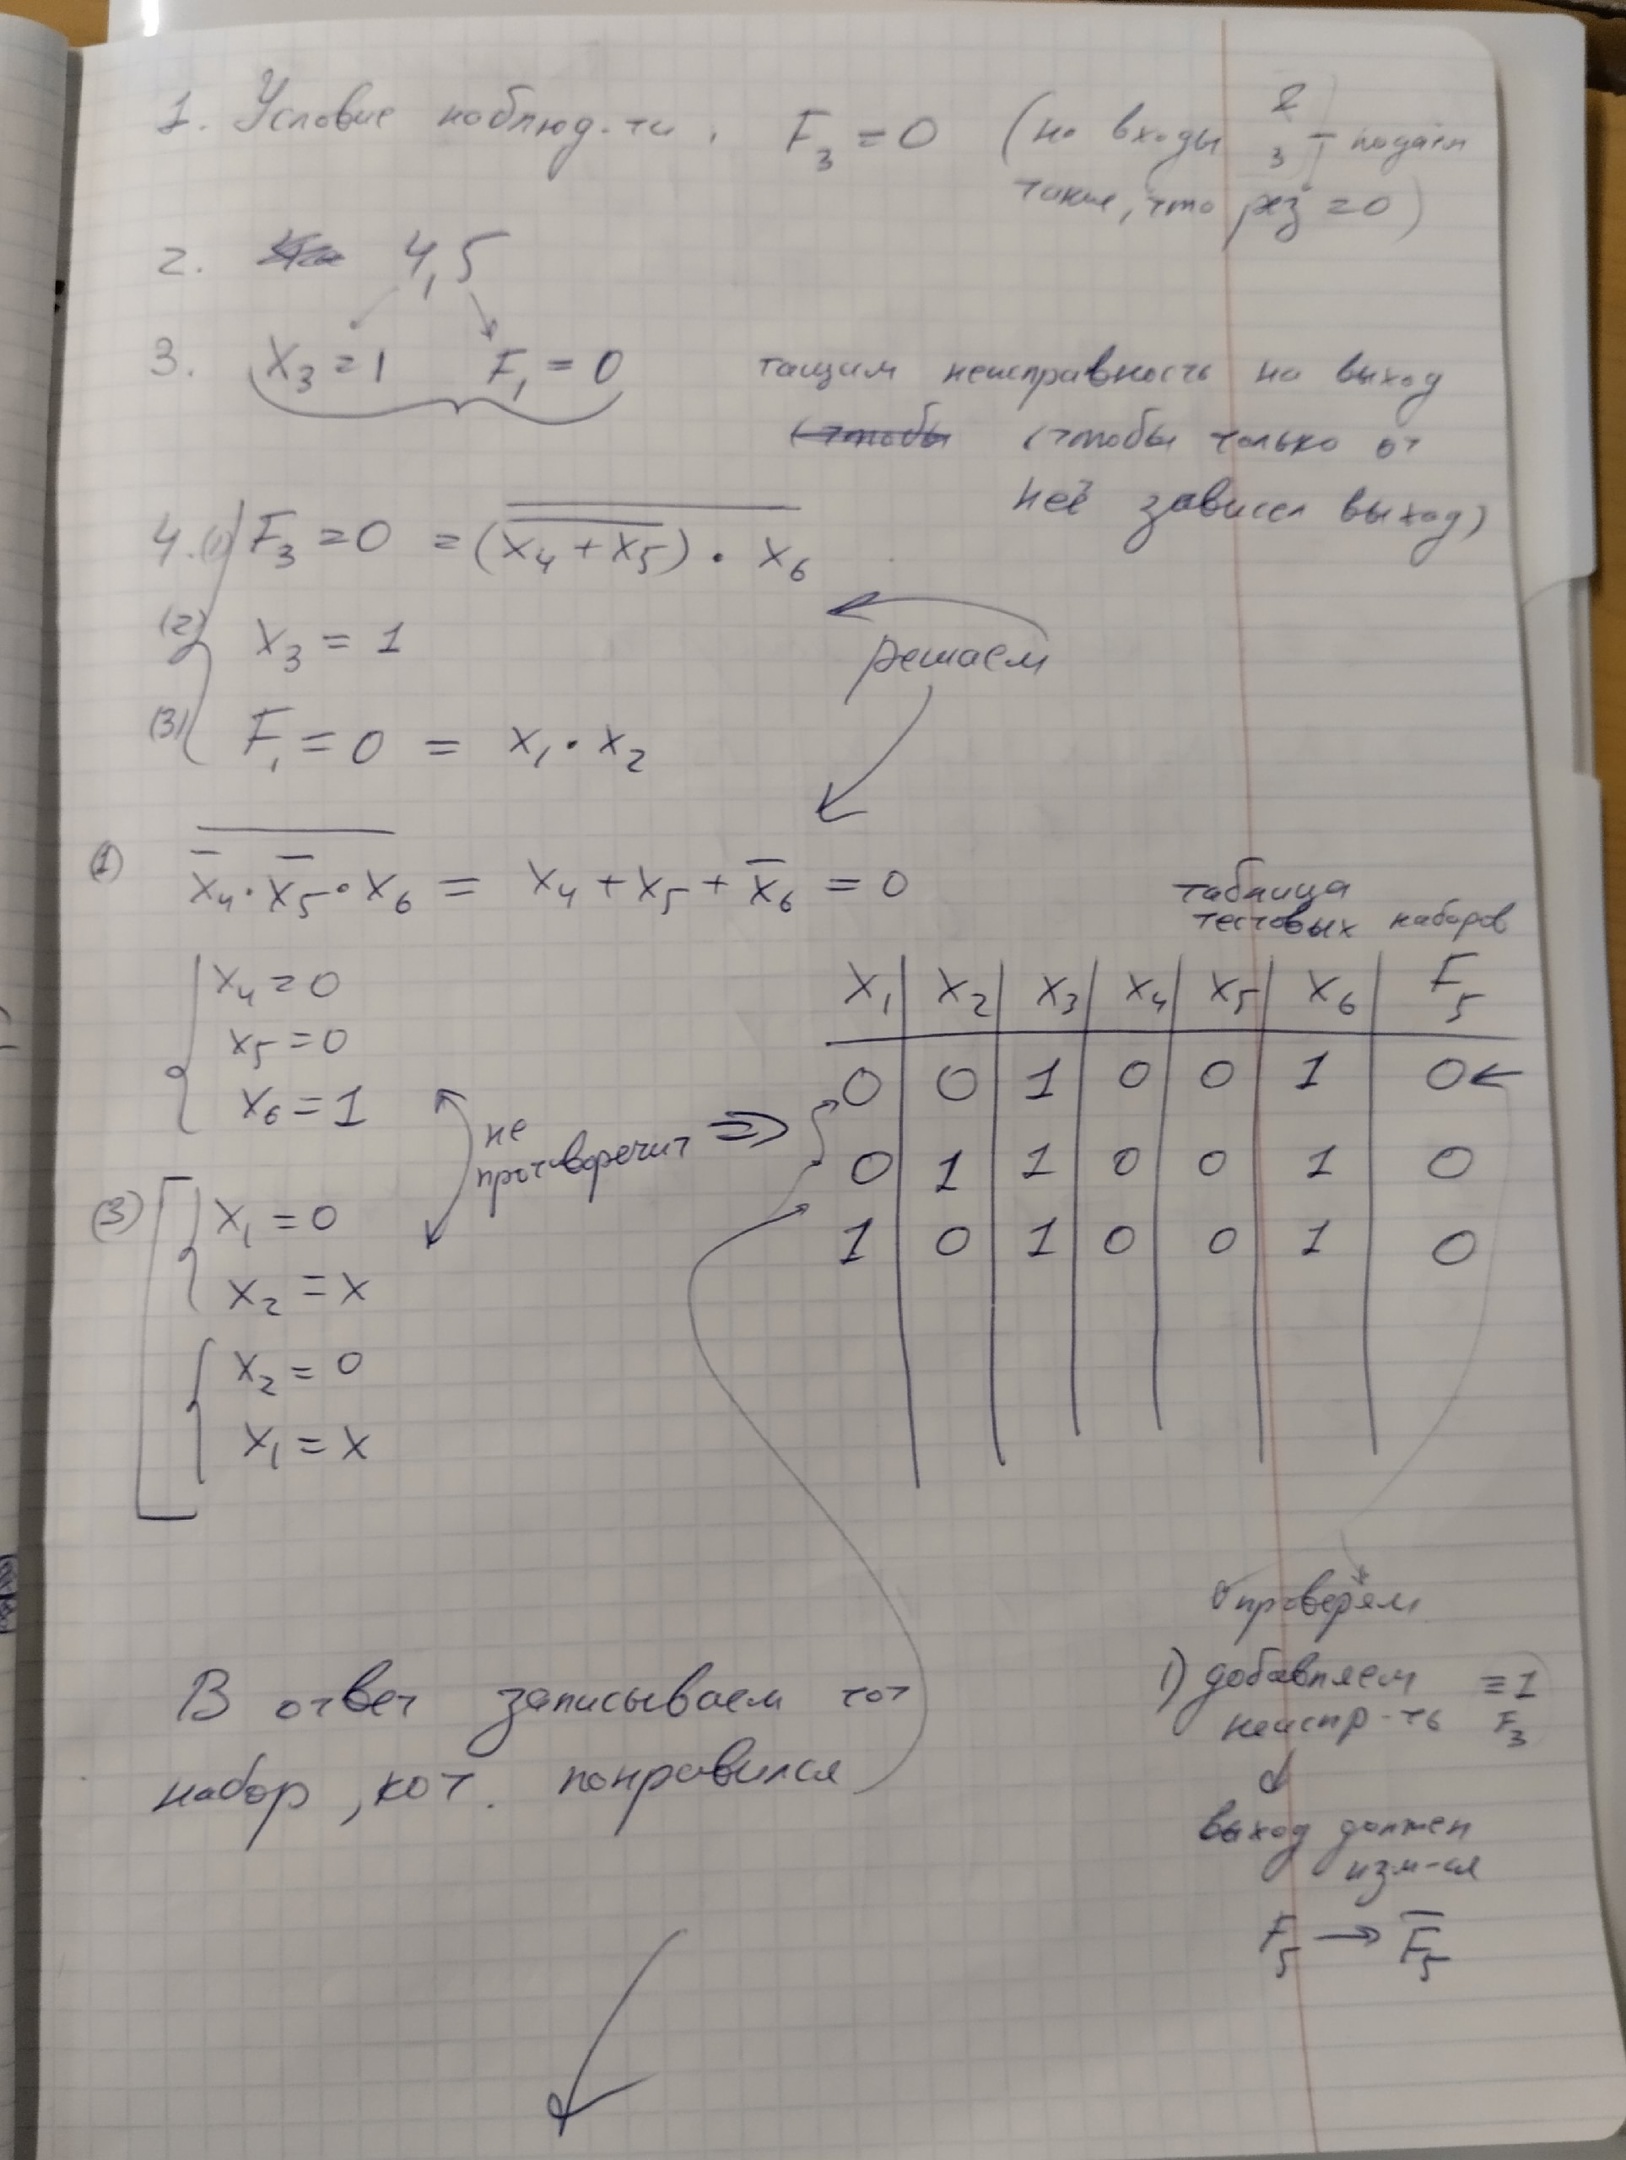 1. Условие наблюд-ти. F₃ = 0 (на входы 2 3 - подаём
такие, что рез = 0)
2. 4,5
3. X₃ = 1 F₁ = 0 тащим неисправность на выход
(чтобы (чтобы только от
неё зависел выход)
4. (1) F₃ = 0 = \overline{(\overline{X₄ + X₅}) · X₆}
(2) X₃ = 1
решаем
(3) F₁ = 0 = X₁ · X₂
(1) \overline{\overline{X₄} · \overline{X₅} · X₆} = X₄ + X₅ + \overline{X₆} = 0
X₄ = 0
X₅ = 0
X₆ = 1
не
противоречит ⇒
(3) X₁ = 0
X₂ = X
X₂ = 0
X₁ = X
таблица
тестовых наборов
X₁ | X₂ | X₃ | X₄ | X₅ | X₆ | F₅
0 | 0 | 1 | 0 | 0 | 1 | 0 ←
0 | 1 | 1 | 0 | 0 | 1 | 0
1 | 0 | 1 | 0 | 0 | 1 | 0
В ответ записываем тот
набор, кот. понравился
проверям
1) добавляем ≡ 1
неиспр-ть F₃
выход должен
изм-ся
F₅ → \overline{F₅}